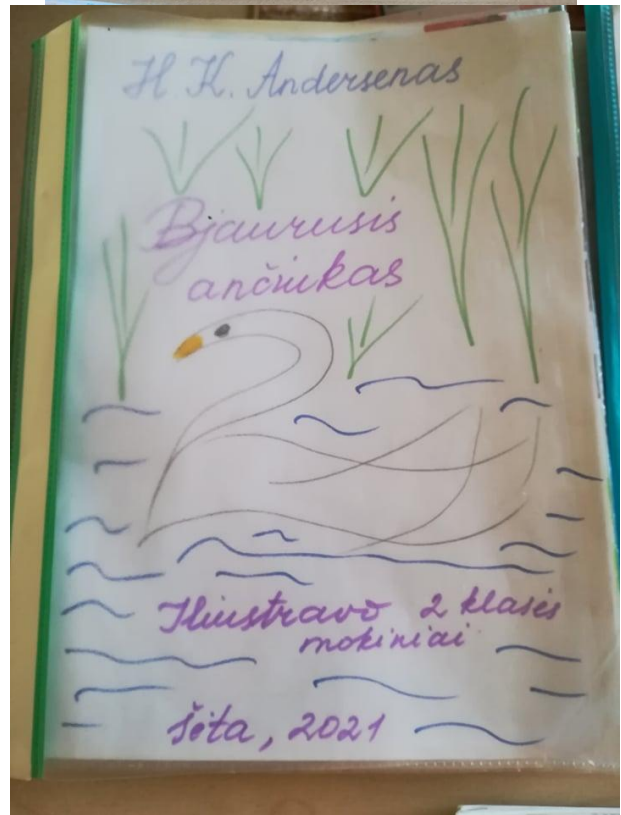 H. K. Andersenas
Bjaurusis
ančiukas
Iliustravo 2 klasės
mokiniai
Šėta, 2021